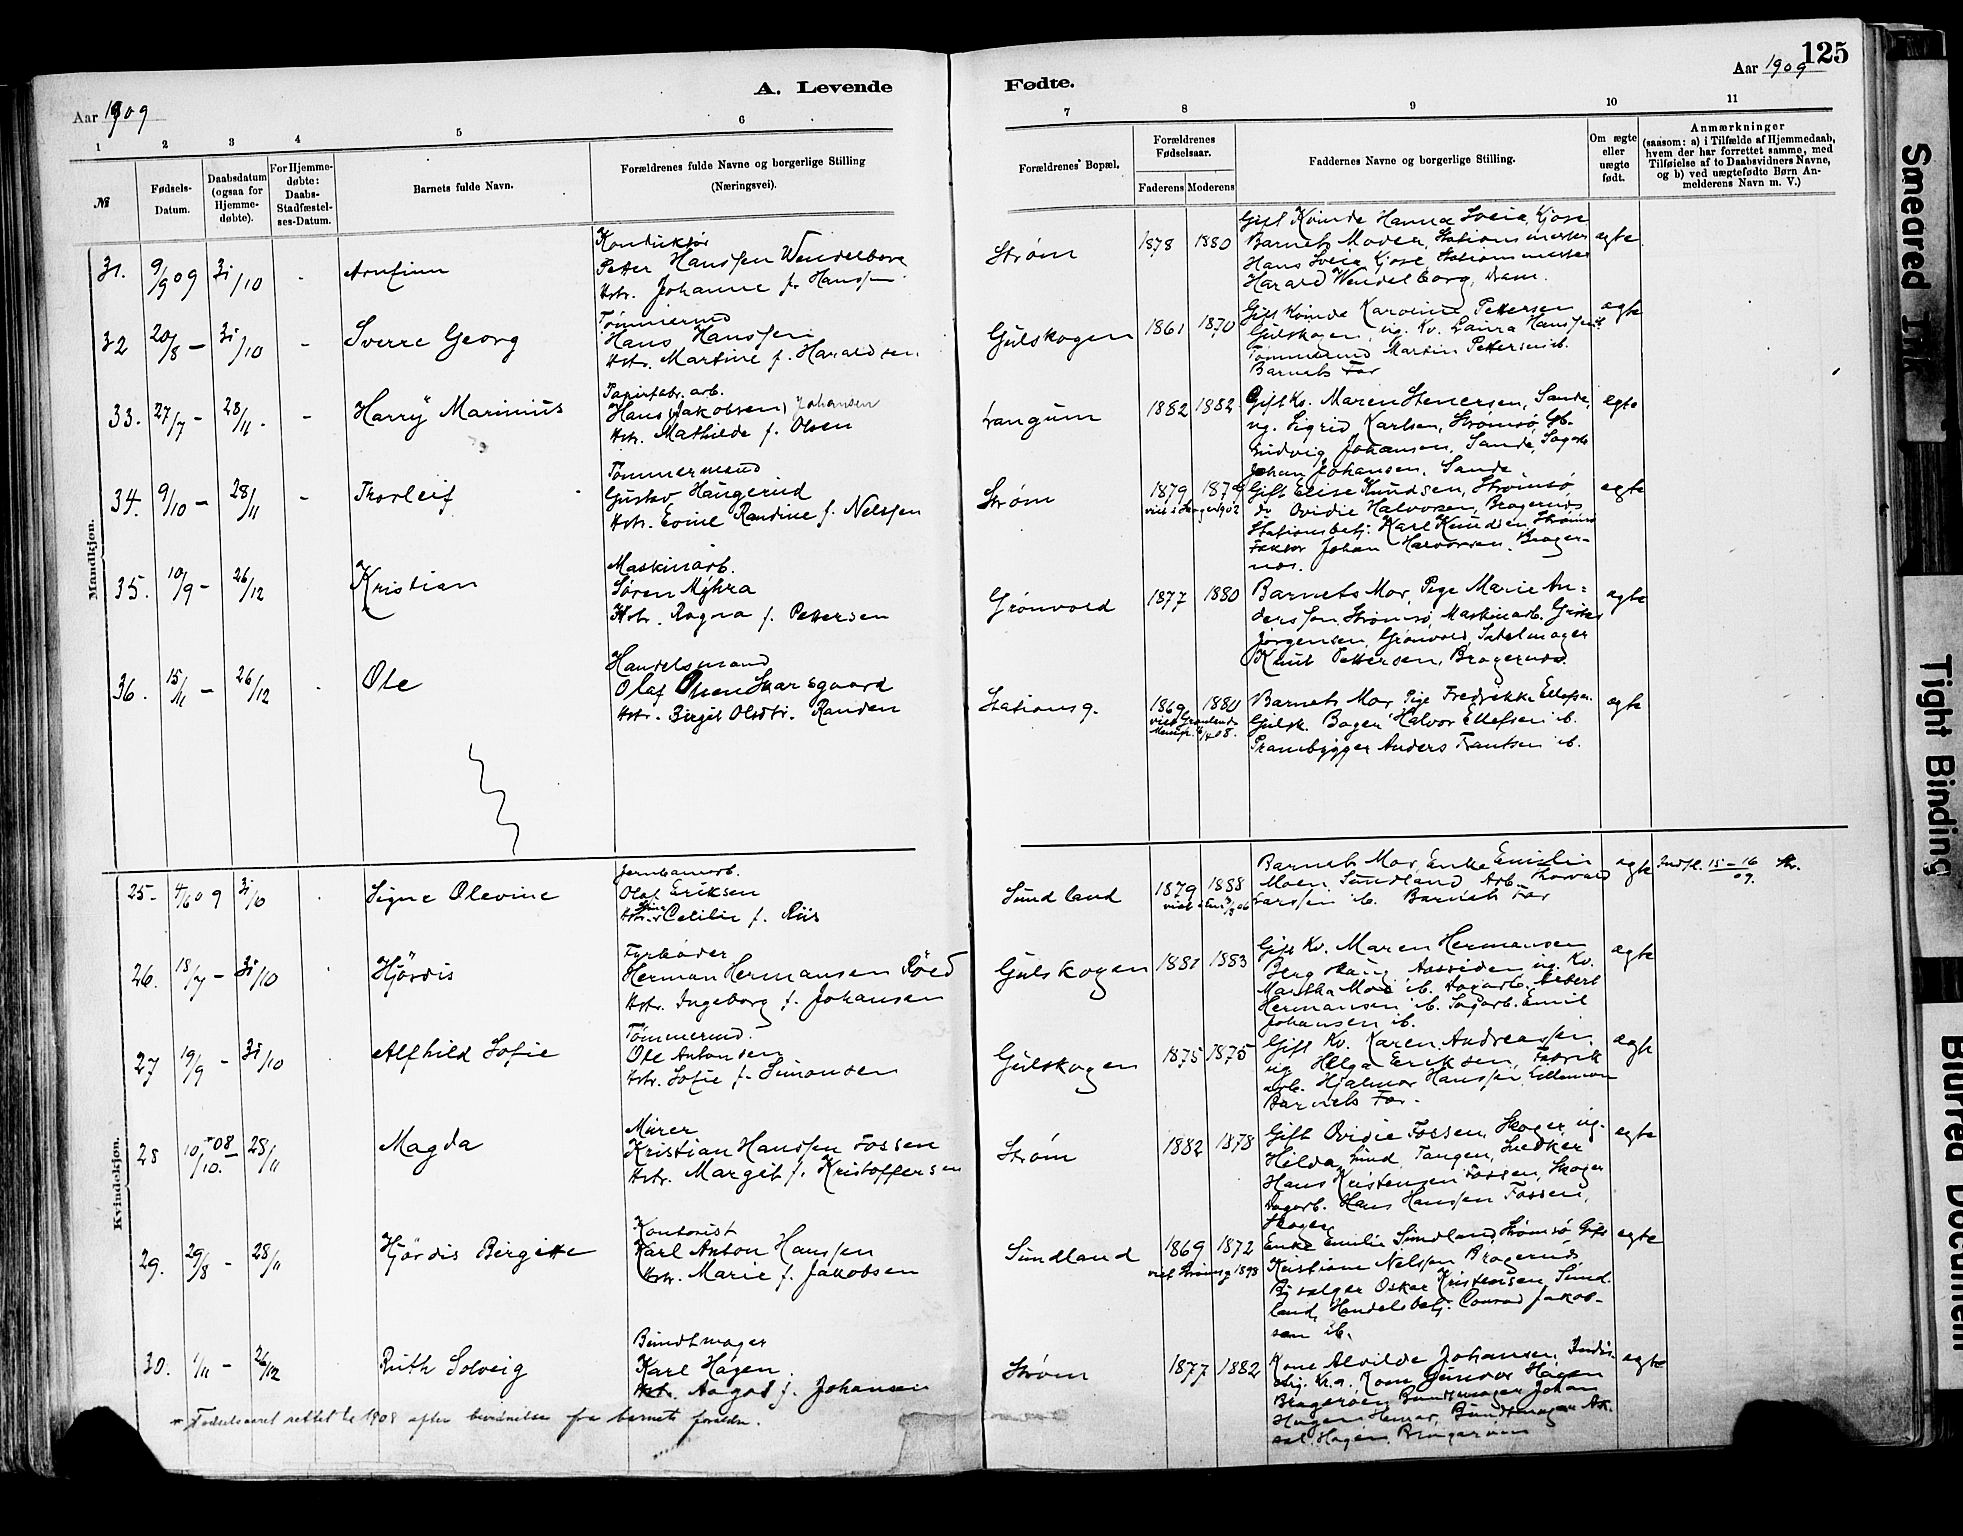 125
Aar 1909
A. Levende
Fødte.
Aar 1909
1 2 3 4 5 6 7 8 9 10 11
№
Fødsels-
Datum.
Daabsdatum
(ogsaa for
Hjemme-
døbte).
For Hjemme-
døbte:
Daabs-
Stadfæstel-
ses-Datum.
Barnets fulde Navn.
Forældrenes fulde Navne og borgerlige Stilling
(Næringsvei).
Forældrenes Bopæl.
Forældrenes
Fødselsaar.
Faderens Moderens
Faddernes Navne og borgerlige Stilling.
Om ægte
eller
uægte
født.
Anmærkninger
(saasom: a) i Tilfælde af Hjemmedaab,
hvem der har forrettet samme, med
Tilføielse af to Daabsvidners Navne,
og b) ved uægtefødte Børn An-
melderens Navn m. V.)
Mandkjøn.
31. 9/9 09 31/10 - Arnfinn
Konduktør
Petter Hanssen Wendelborg
Hstr. Johanne f. Hanssen
Strøm 1878 1880
Gift Kvinde Hanna Sveie, Kjose
Barnets Moder, Stationsmester
Hans Sveie Kjose Stationsmester
Harald Wendelborg, Dram.
ægte
32 20/8 - 31/10 - Sverre Georg
Tømmermd
Hans Hanssen
Hstr. Martine f. Haraldsen
Gulskogen 1861 1870
Gift Kvinde Karoline Pettersen
Gulskogen, ug. Kv. Laura Hanssen ib
Tømmermd Martin Pettersen ib.
Barnets Far
ægte
33. 27/7 - 28/11. - Harry Marinius
Papirfabr. arb.
Hans (Jakobsen) Johansen
Hstr. Mathilde f. Olsen
Langum 1882 1882
Gift Kv. Maren Stenersen, Sande,
ug. Sigrid Karlsen, Strømsø, Gb.
Ludvig Johansen, Sande, Sagarb
Johan Johansen, Sande
ægte
34. 9/10 - 28/11 - Thorleif
Tømmermand
Gustav Haugerud
Hstr. Emilie Randine f. Nelssen
Strøm 1879 1879
Gift Elise Knudsen, Strømsø,
do Ovidie Halvorsen, Bragernes
Stationsbetj. Karl Knudsen Strømsø
Faktor Johan Halvorsen, Brager-
nes.
ægte
35. 10/9 - 26/12 Kristian
Maskinarb.
Søren Myhra
Hstr. Ragna f. Pettersen
Grønvold 1877 1880
Barnets Mor, Pige Marie An-
derssen, Strømsø, Maskinarb.
Jørgensen, Grønvold, Sadelmager
Knut Pettersen, Bragernes.
ægte
36. 15/11 - 26/12 Ole
Handelsmand
Olaf Olsen Skarsgaard
Hstr. Birgit Olsdtr. Randen
Stationsg. 1869 1880
Barnets Mor, Pige Fredrikke Ellefsen
Gulsk. Bager Halvor Ellefsen ib.
Prambygger Anders Frantsen ib.
ægte
Kvindekjøn.
25- 4/6 09 31/10 Signe Olevine
Jernbanearb.
Olaf Eriksen
Hstr. Cecilie f. Riis
Sundland 1879 1888
Barnets Mor, Enke Emilie
Moen, Sundland Arb. Thorvald
Larssen ib. Barnets Far
ægte
26. 18/7 - 31/10 Hjørdis
Fyrbøder
Herman Hermansen Röed
Hstr. Ingeborg f. Johansen
Gulskogen 1881 1883
Gift Kv. Maren Hermansen
Berg Skaug Aassiden ug. Kv.
Martha Moe ib. Dagarb. Albert
Hermansen ib. Sagarb. Emil
Johansen ib.
ægte
27 19/9 - 31/10 Alfhild Sofie
Tømmermd.
Ole Antonsen
Hstr. Sofie f. Simonsen
Gulskogen 1875 1875
Gift Kv. Karen Andreassen
ug Helga Eriksen, Fabrik
arb. Hjalmar Hanssen,
Barnets Far.
ægte
28 10/10 08 28/11 Magda
Murer
Kristian Hanssen Fossen
Hstr. Margit f. Kristoffersen
Strøm 1882 1878
Gift Ovidie Fossen, Skoger ug.
Hilda Lund, Tangen, Snedker
Hans Kristensen Fossen, Skoger
Dagarb. Hans Hanssen Fossen,
Skoger
ægte
29. 29/8 - 28/11 Hjørdis Birgitte
Kontorist
Karl Anton Hanssen
Hstr. Marie f. Jakobsen
Sundland 1869 1872
viet Strømsø 1898
Enke Emilie Sundland, Strømsø Gift
Kristiane Nelssen Bragernes
Bysælger Oskar Kristensen, Sund-
land, Handelsbetj. Conrad Jakob-
sen ib.
ægte
30. 1/11 - 26/12 Ruth Solveig
Bundtmager
Karl Hagen
Hstr. Aagot f. Johansen
Strøm 1877 1882
Kone Alvilde Johansen,
Kr.a. Kone Gunvor Hagen
Bragerøen Bundtmager Johan
Hagen Hamar, Bundtmager Ak-
sel Hagen, Bragerøen
ægte
Fødselsaaret rettet til 1908 efter bevidnelse fra barnets forældre.
Smeared Ink
Tight Binding
Blurred Document